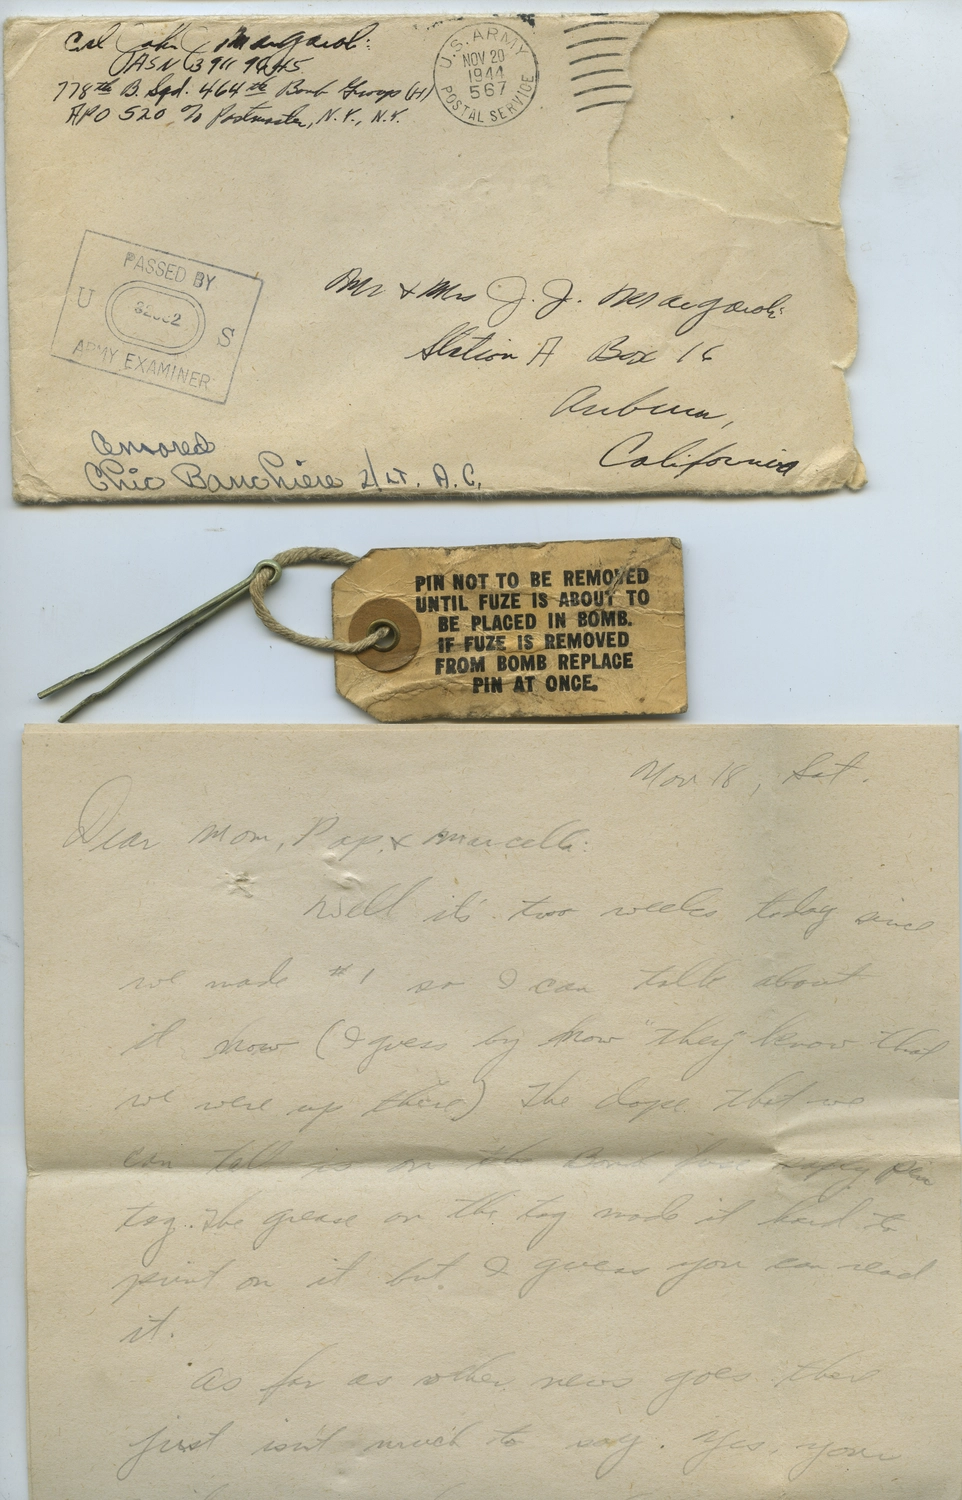 Cpl John J Margaroli
ASN
778th B. Sqd. 464th Bomb Group (H)
APO 520 % Postmaster, N.Y., N.Y.
U.S. ARMY
NOV 20
1944
567
POSTAL SERVICE
PASSED BY
U S
ARMY EXAMINER
Mr & Mrs J. J. Margaroli
Station A Box 16
Auburn,
California
Censored
Chic Banchiere 2/Lt. A.C.
PIN NOT TO BE REMOVED
UNTIL FUZE IS ABOUT TO
BE PLACED IN BOMB.
IF FUZE IS REMOVED
FROM BOMB REPLACE
PIN AT ONCE.
Nov 18, Sat.
Dear Mom, Pop, & Marcella:
Well it's two weeks today since
we made #1 so I can talk about
it now (I guess by now "they" know that
we were up there) The dope that we
can tell is on the Bomb fuse safty pin
tag. The grease on the tag made it hard to
print on it but I guess you can read
it.
As far as other news goes there
just isn't much to say. Yes, your